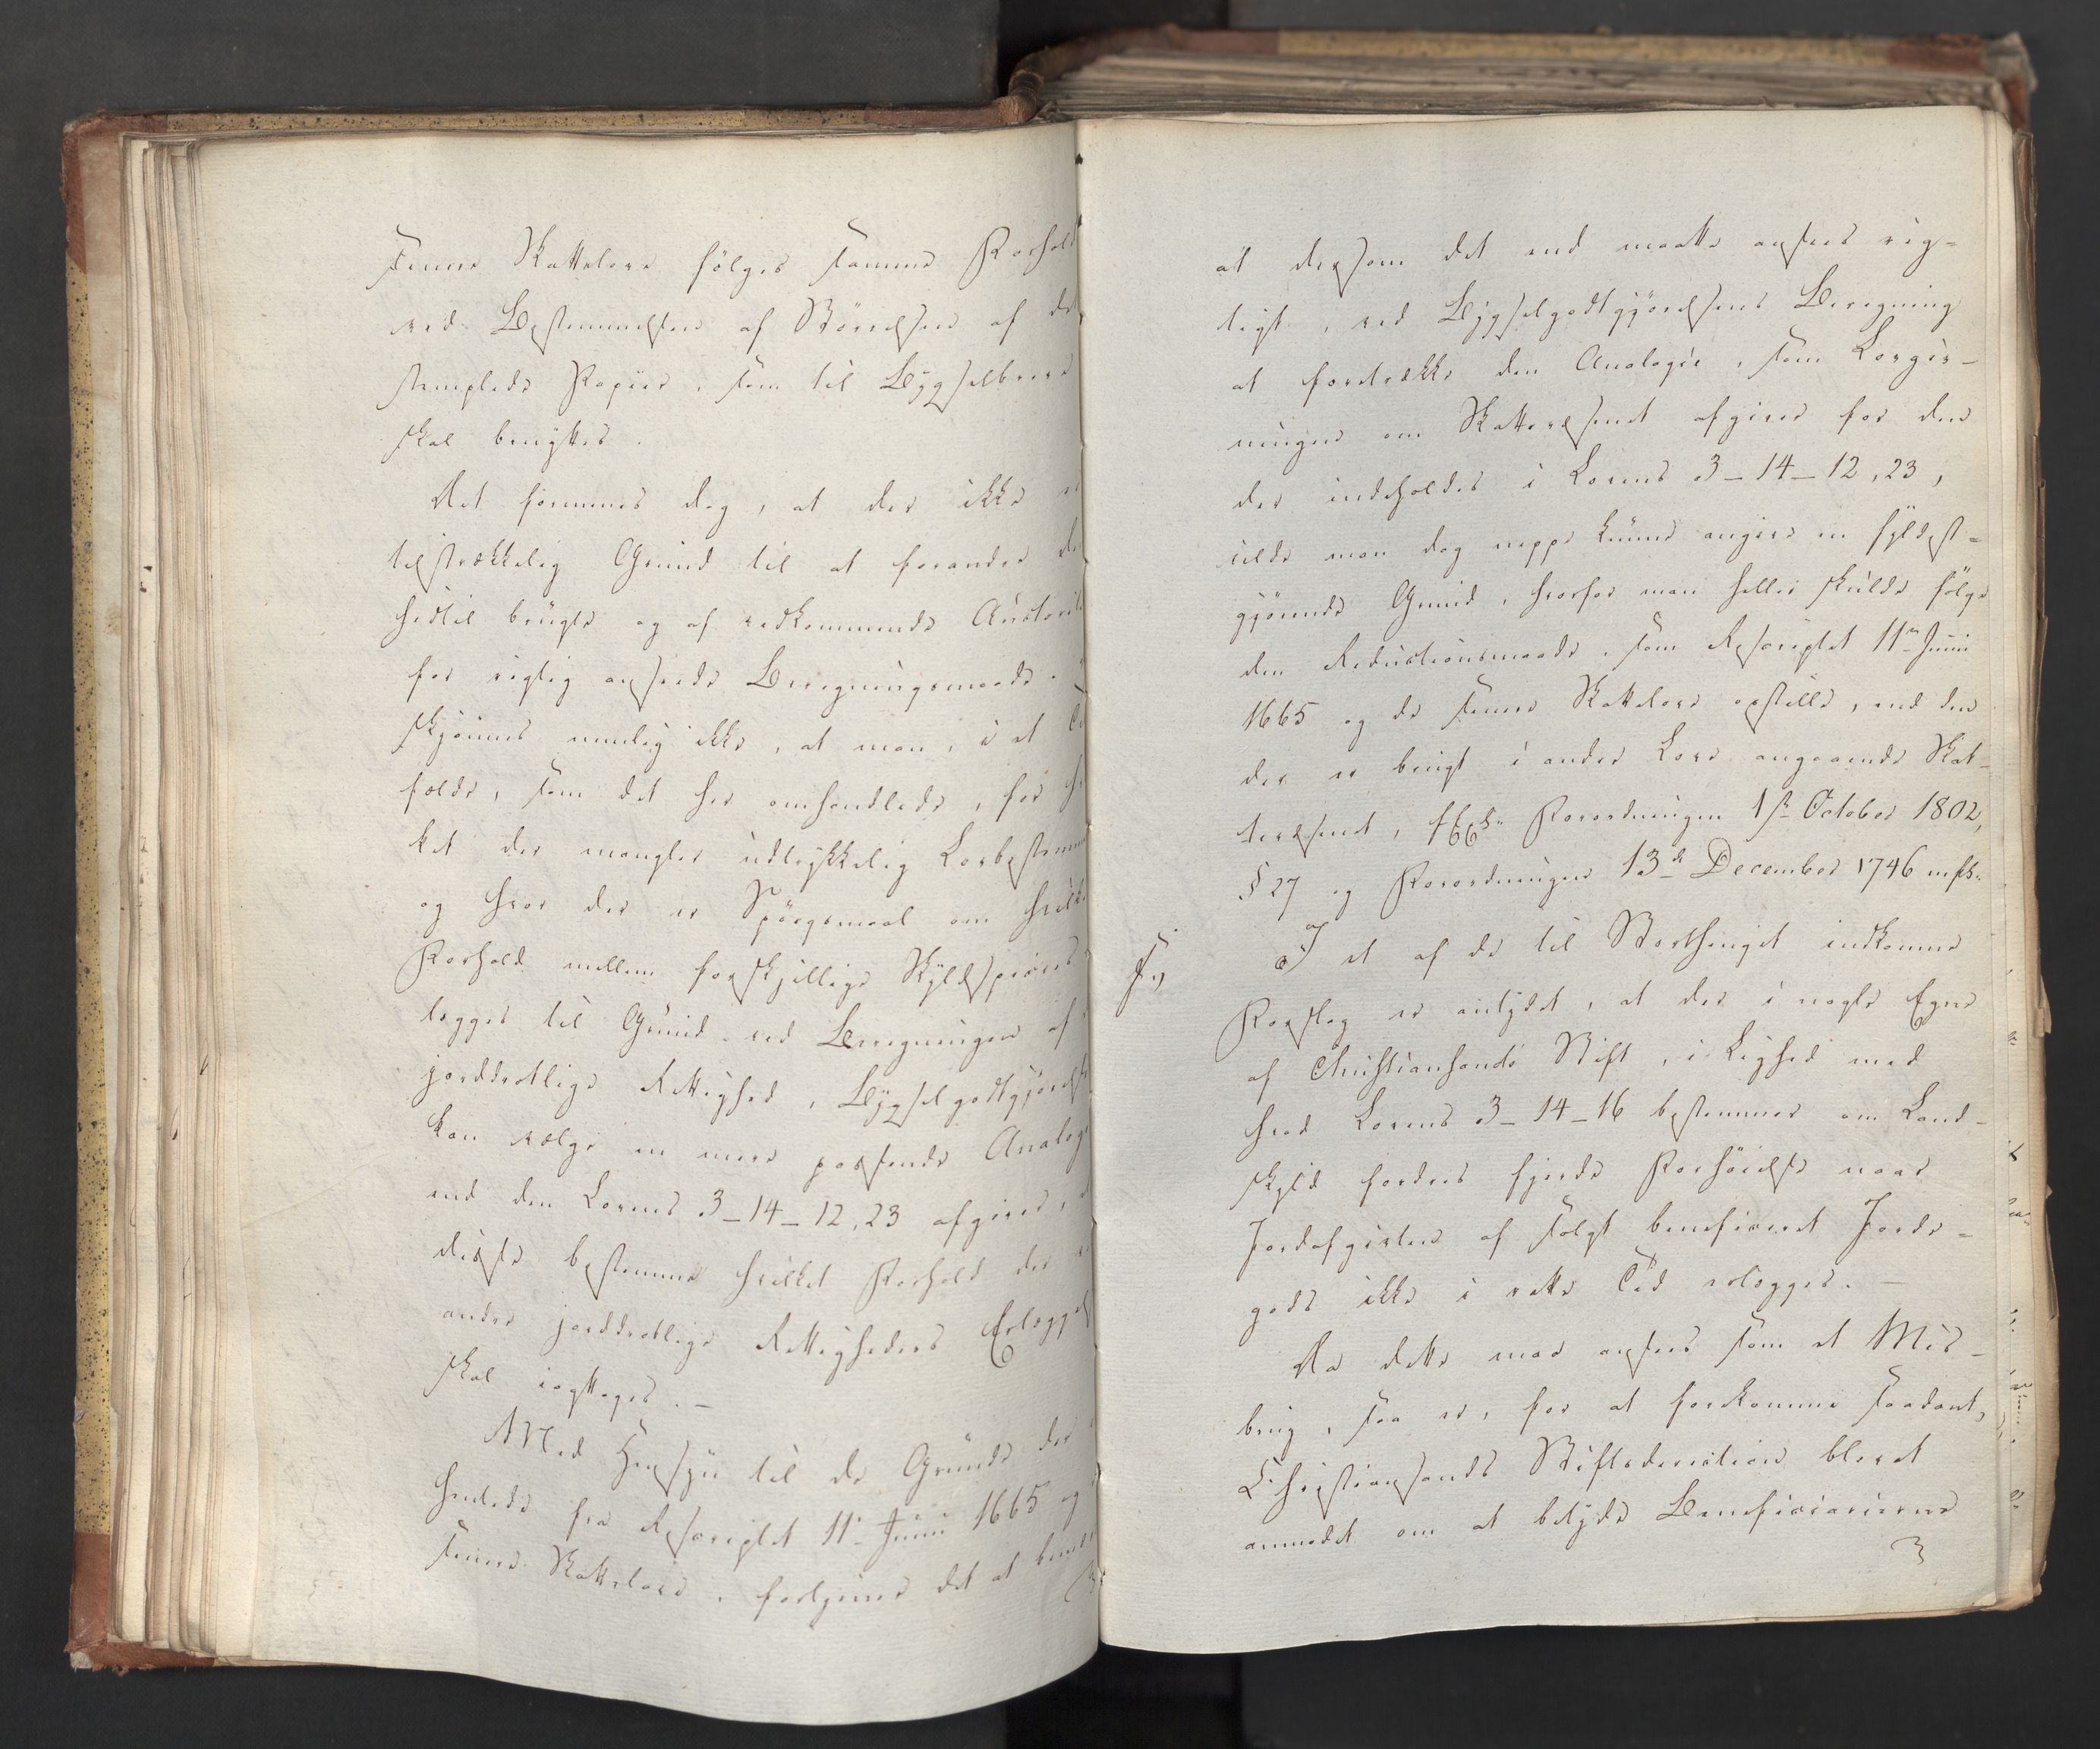 senere Skattelove fölges samme Forhold
ved Bestemmelsen af Störrelsen af det
stemplede Papiir, som til Bygselbreve
skal benyttes.
Det formenes dog, at der ikke er
tilstrækkelig Grund til at forandre den
hidtil brugte og af vedkommende Auctorit
for rigtig anseede Beregningsmaade.
skjönnes nemlig ikke, at man, i et Til
fælde, som det her omhandlede, for hvil
ket der mangler udtrykkelig Lovbestemm
og hvor der er Spörgsmaal om hvilket
Forhold mellem forskjellige Skyldspecies
lægges til Grund ved Beregningen af
jorddrotlige Rettighed, Bygselgodtgjörelse
kan vælge en mere passende Analogie
end den Lovens 3–14–12, 23 afgiver,
disse bestemme hvilket Forhold der ved
andre jorddrotlige Rettigheders Erlæggelse
skal iagttages. –
Med Hensyn til de Grunde der
hentede fra Rescriptet 11 Junii 1665 og
senere Skattelove, fortjener det at bemær
at dersom det end maatte ansees rig-
tigt, ved Bygselgodtgjörelsens Beregning
at foretrække den Analogie, som Lovgiv-
ningen om Skattevæsenet afgiver for den
der indeholdes i Lovens 3–14–12, 23,
vilde man dog neppe kunne angive en fyldest-
gjörende Grund, hvorfor man heller skulde fölge
den Reductionsmaade, som Rescriptet 11te Junii
1665 og de senere Skattelove opstille, end den
der er brugt i andre Love angaaende Skat-
tevæsenet, Forordningen 1ste October 1802,
§ 27 og Forordningen 13de December 1746
I et af de til Storthinget indkomne
Forslag er antydet, at der i nogle Egne
af Christiansands Stift, i Lighed med
hvad Lovens 3–14–16 bestemmer om Land-
skyld fordres fjerde Forhöielse naar
Jordafgivten af solgt beneficeret Jorde-
gods ikke i rette Tid erlægges. –
Da dette maa ansees som et Mis-
brug, saa er, for at forekomme saadant,
Christiansands Stiftsdirection blevet
anmodet om at betyde Beneficiarierne